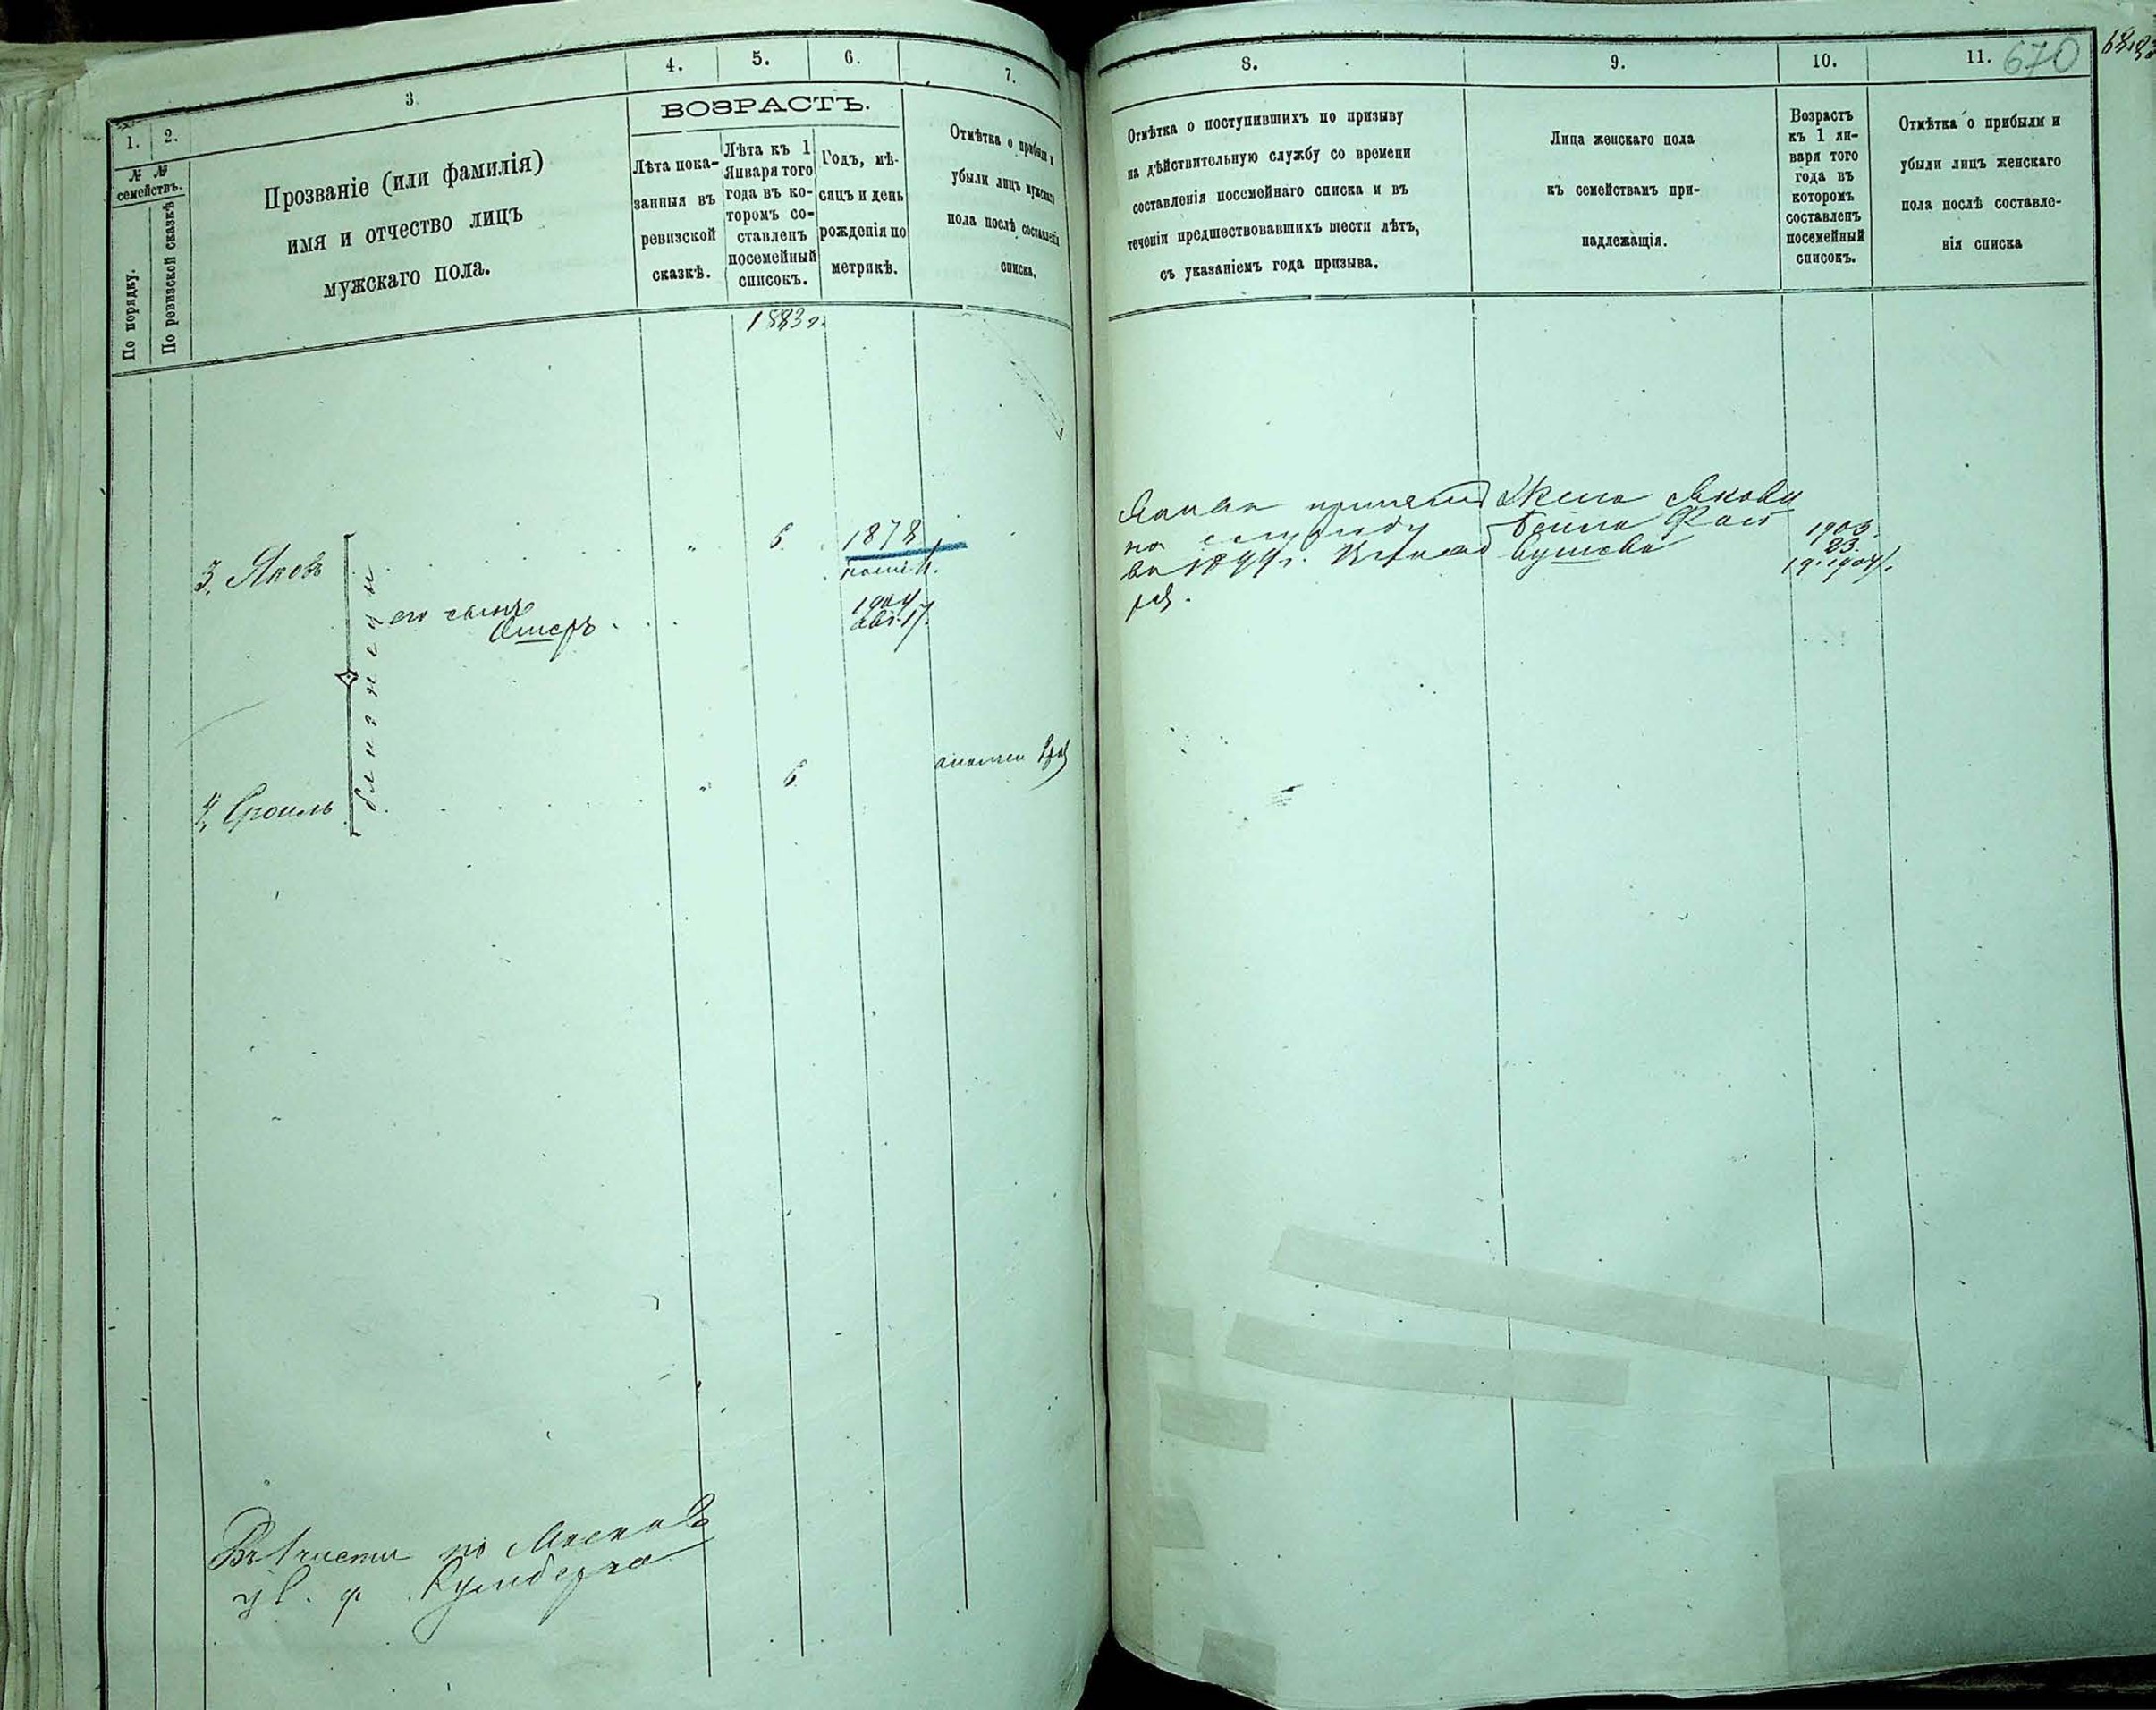 1.
2.
3.
4.
5.
6.
7.
№ №
семействъ.
По порядку.
По ревизской сказкѣ
Прозваніе (или фамилія)
имя и отчество лицъ
мужскаго пола.
ВОЗРАСТЪ.
Лѣта пока-
занныя въ
ревизской
сказкѣ.
Лѣта къ 1
Января того
года въ ко-
торомъ со-
ставленъ
посемейный
списокъ.
Годъ, мѣ-
сяцъ и день
рожденія по
метрикѣ.
Отмѣтка о прибыли и
убыли лицъ мужскаго
пола послѣ составленія
списка.
1883 г.
3. Яковъ
6
1878
его сынъ
Ошеръ
1904
авг. 17.
близнецы
4. Сроиль
6
Въ 1 части по
8.
9.
10.
11.
670
Отмѣтка о поступившихъ по призыву
на дѣйствительную службу со времени
составленія посемейнаго списка и въ
теченіи предшествовавшихъ шести лѣтъ,
съ указаніемъ года призыва.
Лица женскаго пола
къ семействамъ при-
надлежащія.
Возрастъ
къ 1 ян-
варя того
года въ
которомъ
составленъ
посемейный
списокъ.
Отмѣтка о прибыли и
убыли лицъ женскаго
пола послѣ составле-
нія списка
принятъ
на службу
въ 1899 г.
Жена Якова
1903
23.